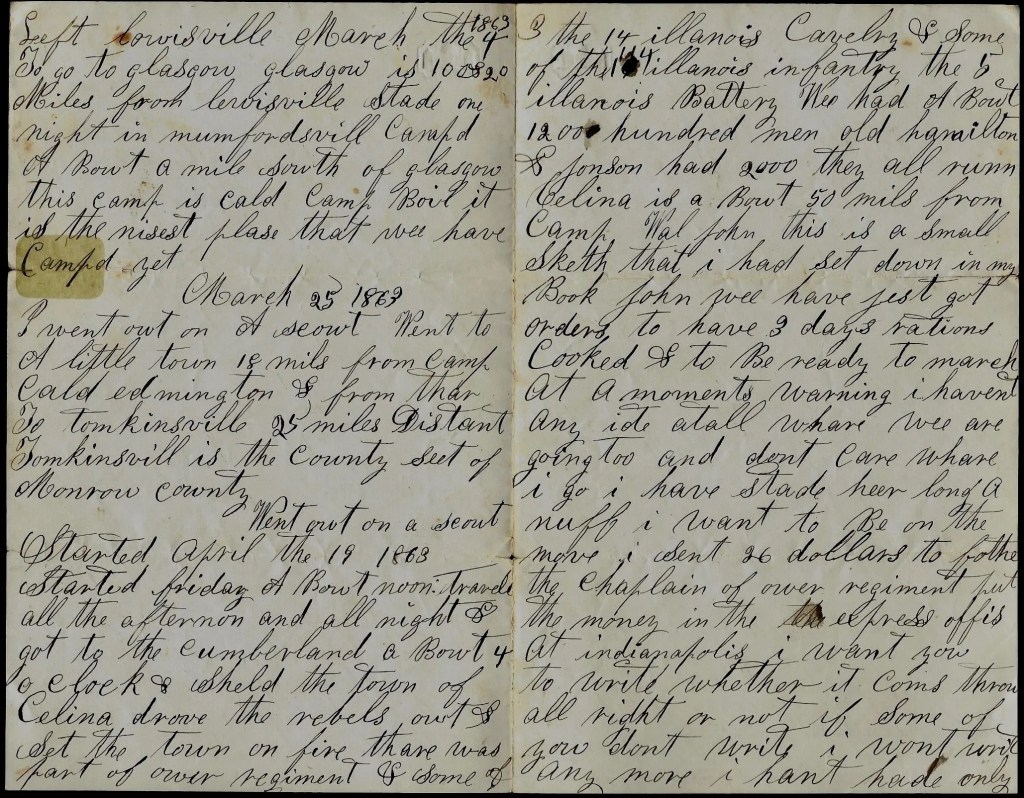 Leeft Lowisville March the 4 1863
To go to glasgow glasgow is 100 & 20
Miles from lewisville Stade one
night in mumfordsvill Camp,d
A Bowt a mile sowth of glasgow
this camp is cald Camp Boil it
is the nisest plase that wee have
Camp,d yet
March 25 1863
I went owt on A scowt Went to
A little town 18 mils from camp
cald edmington & from thar
To tomkinsville 25 miles Distant
Tomkinsvill is the County seet of
Monrow county
Went owt on a scowt
Started April the 19 1863
Started friday A Bowt noon: Traveld
all the afternon and all night &
got to the Cumberland a Bowt 4
o clock & Sheld the town of
Celina drove the rebels owt &
Set the town on fire thare was
part of ower regiment & some of
3 the 14 illanois Cavelry & Some
of the 114 illanois infantry the 5
illanois Battery Wee had A Bowt
1200 hundred men old hamilton
& jonson had 2000 they all runn
Celina is a Bowt 50 mils from
Camp Wal john this is a small
Sketh that i had set down in my
Book john wee have jest got
orders to have 3 days rations
Cooked & to Be ready to march
At A moments warning i havent
any ide atall whare wee are
going too and dont care whare
i go i have stade heer long A
nuff i want to Be on the
move i sent 26 dollars to fothe
the Chaplain of ower regiment put
the money in the express offis
At indianapolis i want yow
to write whether it coms throw
all right or not if some of
yow dont write i wont writ
any more i hant hade only